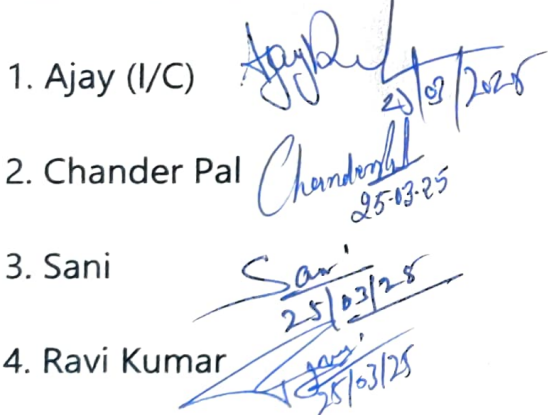 1. Ajay (I/C)
25/03/2025
2. Chander Pal Chanderpal
25-03-25
3. Sani Sani
25/03/25
4. Ravi Kumar
25/03/25